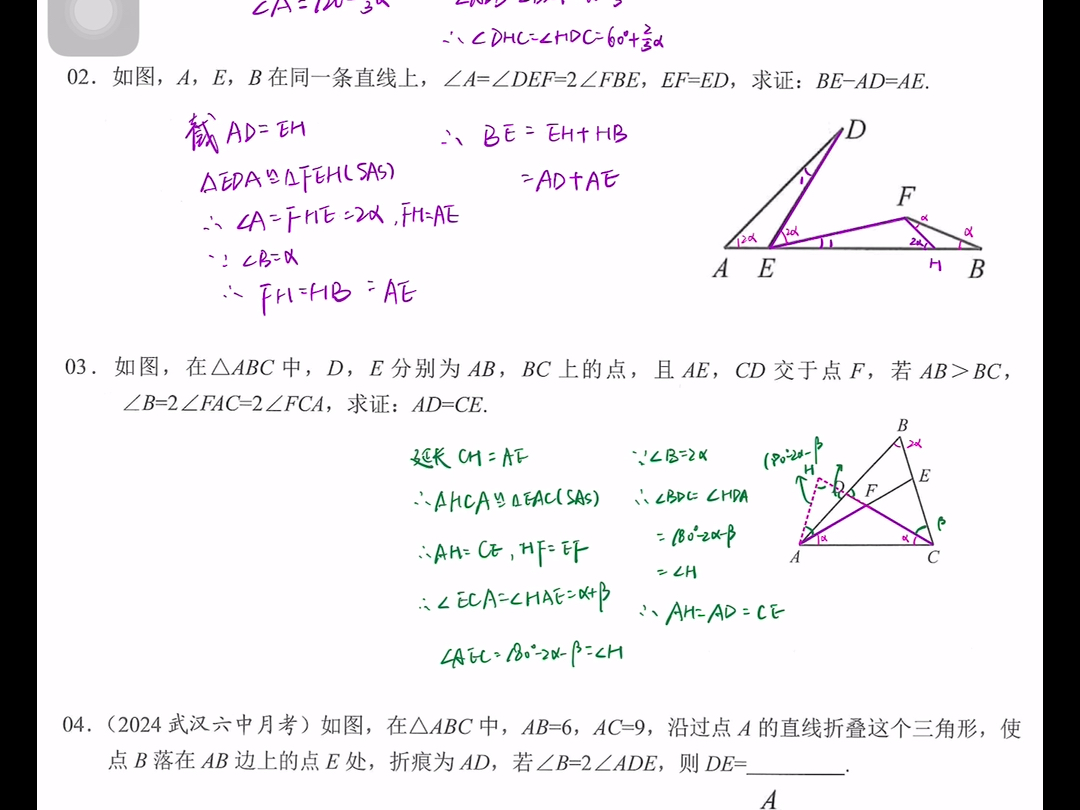 ∴∠DHC=∠HDC=60°+⅔α
02. 如图，A，E，B 在同一条直线上，∠A=∠DEF=2∠FBE，EF=ED，求证：BE−AD=AE.
截 AD=EH
△EDA≌△FEH(SAS)
∴ ∠A=FHE=2α，FH=AE
∵ ∠B=α
∴ FH=HB =AE
∴ BE = EH+HB
=AD+AE
D
F
1
α
α
2α
2α
1
2α
A
E
H
B
03. 如图，在△ABC 中，D，E 分别为 AB，BC 上的点，且 AE，CD 交于点 F，若 AB＞BC，
∠B=2∠FAC=2∠FCA，求证：AD=CE.
延长 CH=AE
∴△HCA≌△EAC(SAS)
∴AH=CE，HF=EF
∴∠ECA=∠HAE=α+β
∠AEC=180°-2α-β=∠H
∵∠B=2α
∴∠BDC=∠HDA
=180°-2α-β
=∠H
∴AH=AD=CE
180°-2α-β
B
2α
H
D
F
E
β
α
α
A
C
04.（2024 武汉六中月考）如图，在△ABC 中，AB=6，AC=9，沿过点 A 的直线折叠这个三角形，使
点 B 落在 AB 边上的点 E 处，折痕为 AD，若∠B=2∠ADE，则 DE=________.
A